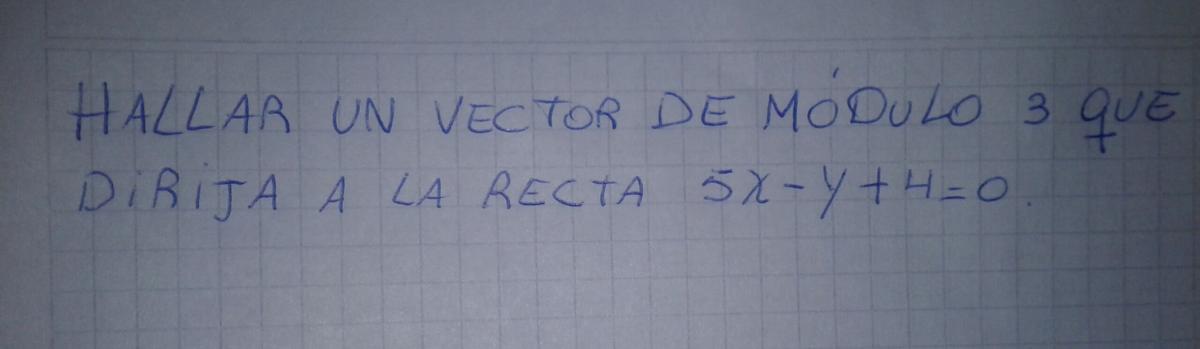 HALLAR UN VECTOR DE MÓDULO 3 QUE
DIRIJA A LA RECTA 5X-Y+4=0.